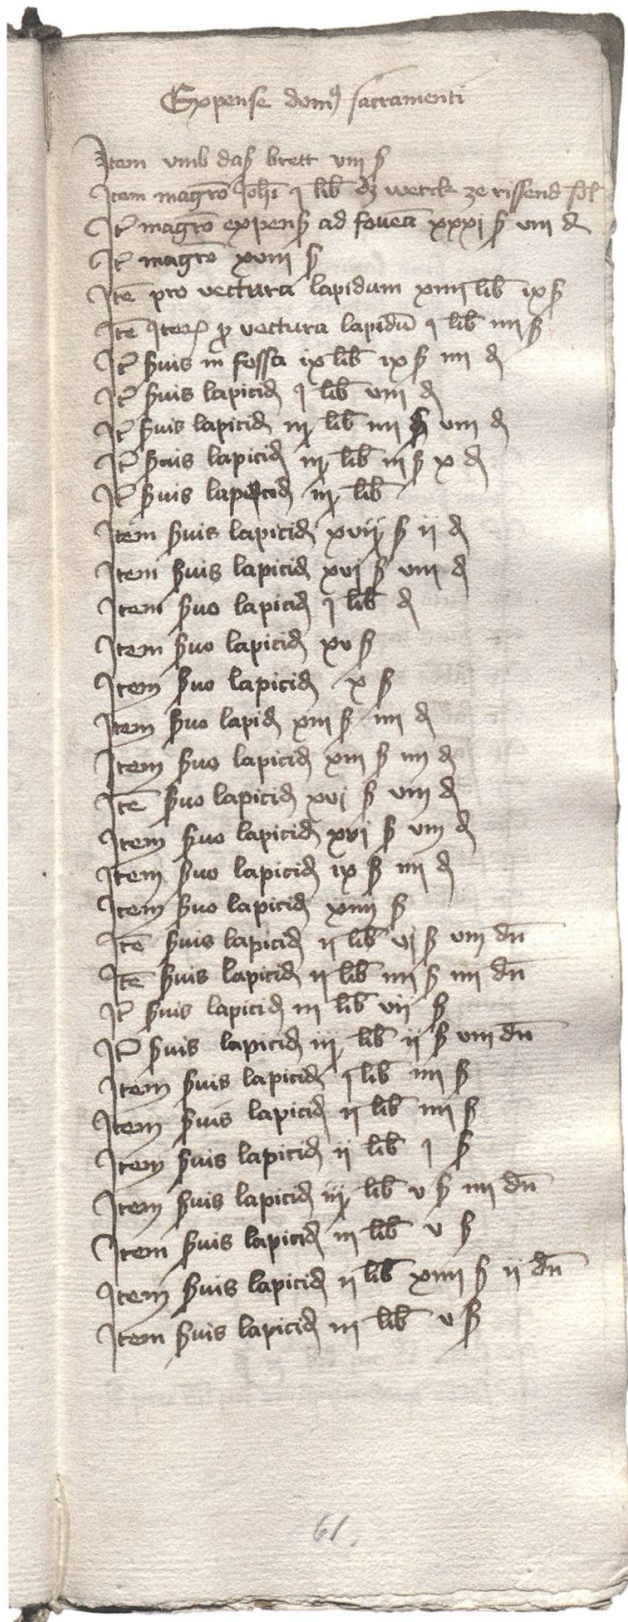 Expense dom9 sacramenti
Item umb daß brett viii ß
Item magro Johi i lib dz werck ze rissend sol
It magro expens ad foveā xxxi ß viii d
It magro xviii ß
Itē pro vectura lapidum xiiii lib ix ß
Itē Item p vectura lapidū i lib iiii ß
It suis in fossa ix lib ix ß iiii d
It suis lapicid i lib viii d
It suis lapicid iij lib iiii ß viii d
It suis lapicid iij lib iii ß x d
It suis lapicid iij lib
Item suis lapicid xvij ß ij d
Item suis lapicid xvj ß viii d
Item suo lapicid i lib d
Item suo lapicid xv ß
Item suo lapicid x ß
Item suo lapid xiii ß iiii d
Item suo lapicid xiii ß iiii d
Itē suo lapicid xvj ß viii d
Item suo lapicid xvj ß viii d
Item suo lapicid ix ß iiii d
Item suo lapicid xiiii ß
Itē suis lapicid ij lib vj ß viii dn̄
Itē suis lapicid ij lib iiii ß iiii dn̄
It suis lapicid iii lib vij ß
It suis lapicid iij lib ij ß viii dn̄
Item suis lapicid i lib iiii ß
Item suis lapicid ij lib iiii ß
Item suis lapicid ij lib i ß
Item suis lapicid iij lib v ß iiii dn̄
Item suis lapicid iii lib v ß
Item suis lapicid ij lib xiiii ß ij dn̄
Item suis lapicid iii lib v ß
61.